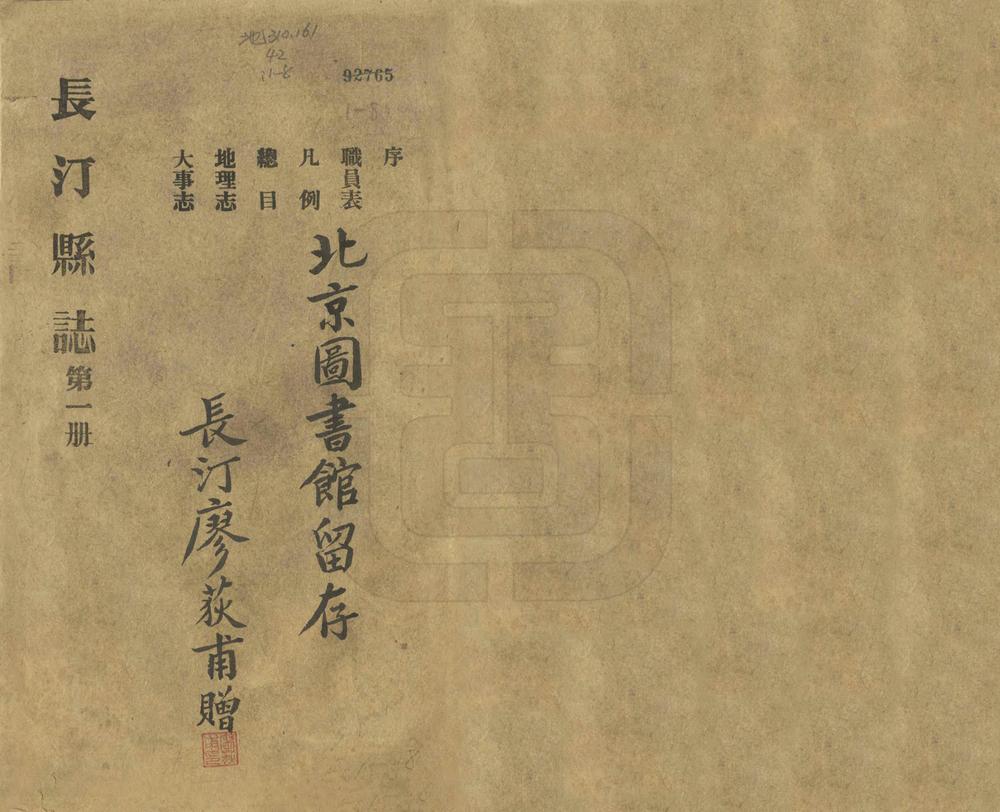 地310.161
42
:1-8
92765
1-8
序
職員表
凡例
總目
地理志
大事志
北京圖書館留存
長汀廖荻甫贈
長汀縣誌第一册